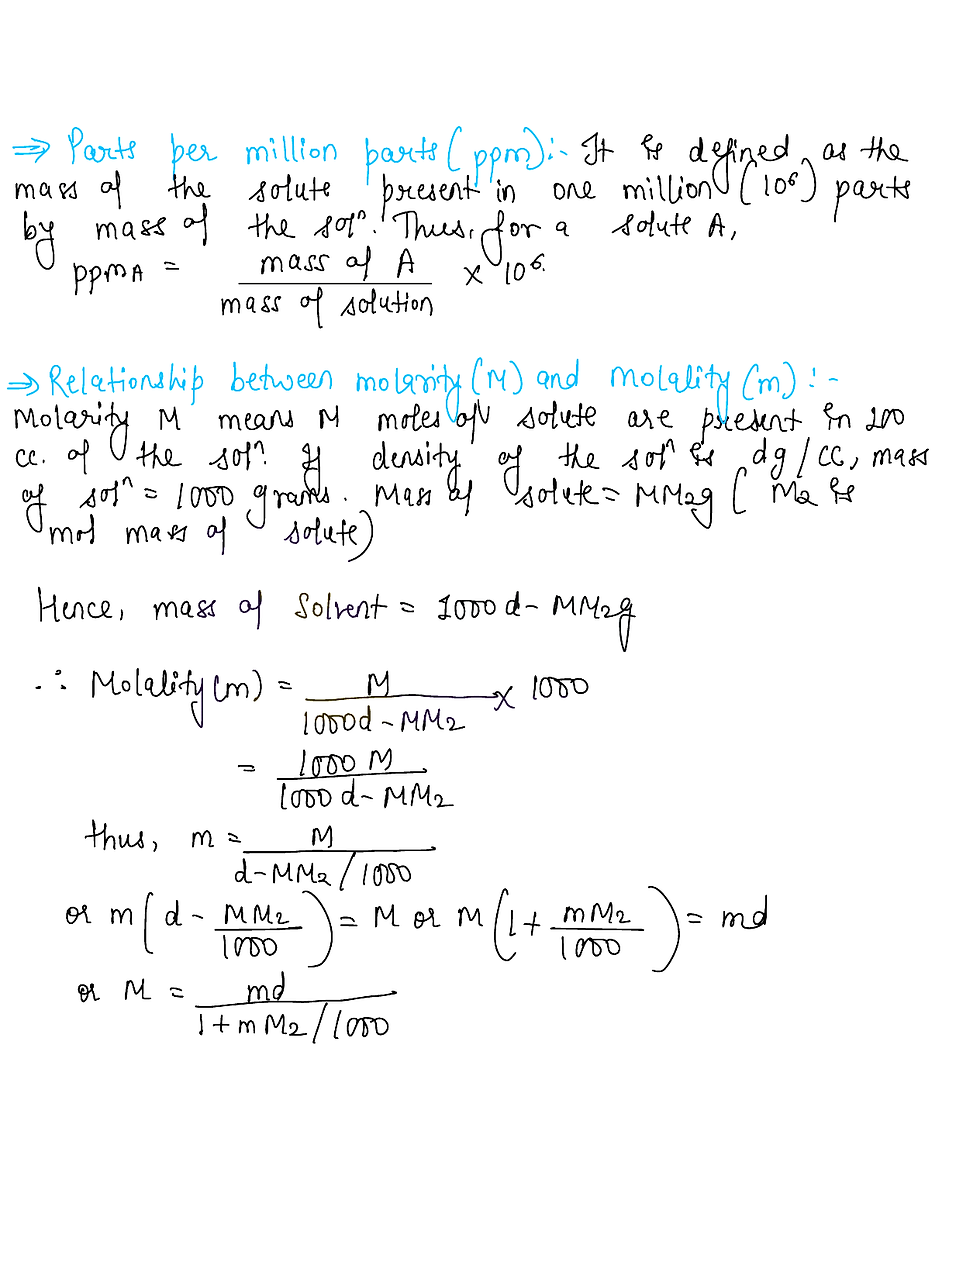 ⇒ Parts per million parts (ppm):- It is defined as the
mass of the solute present in one million (10⁶) parts
by mass of the solⁿ. Thus, for a solute A,
ppmA = mass of A / mass of solution × 10⁶.
⇒ Relationship between molarity (M) and Molality (m) :-
Molarity M means M moles of solute are present in 100
cc. of the solⁿ. If density of the solⁿ is dg/cc, mass
of solⁿ = 1000 grams. Mass of solute = MM₂g ( M₂ is
mol mass of solute)
Hence, mass of Solvent = 1000 d - MM₂g
∴ Molality (m) = M / 1000d - MM₂ × 1000
= 1000 M / 1000 d - MM₂
thus, m = M / d - MM₂/1000
or m(d - MM₂/1000) = M or M(1 + mM₂/1000) = md
or M = md / 1 + mM₂/1000